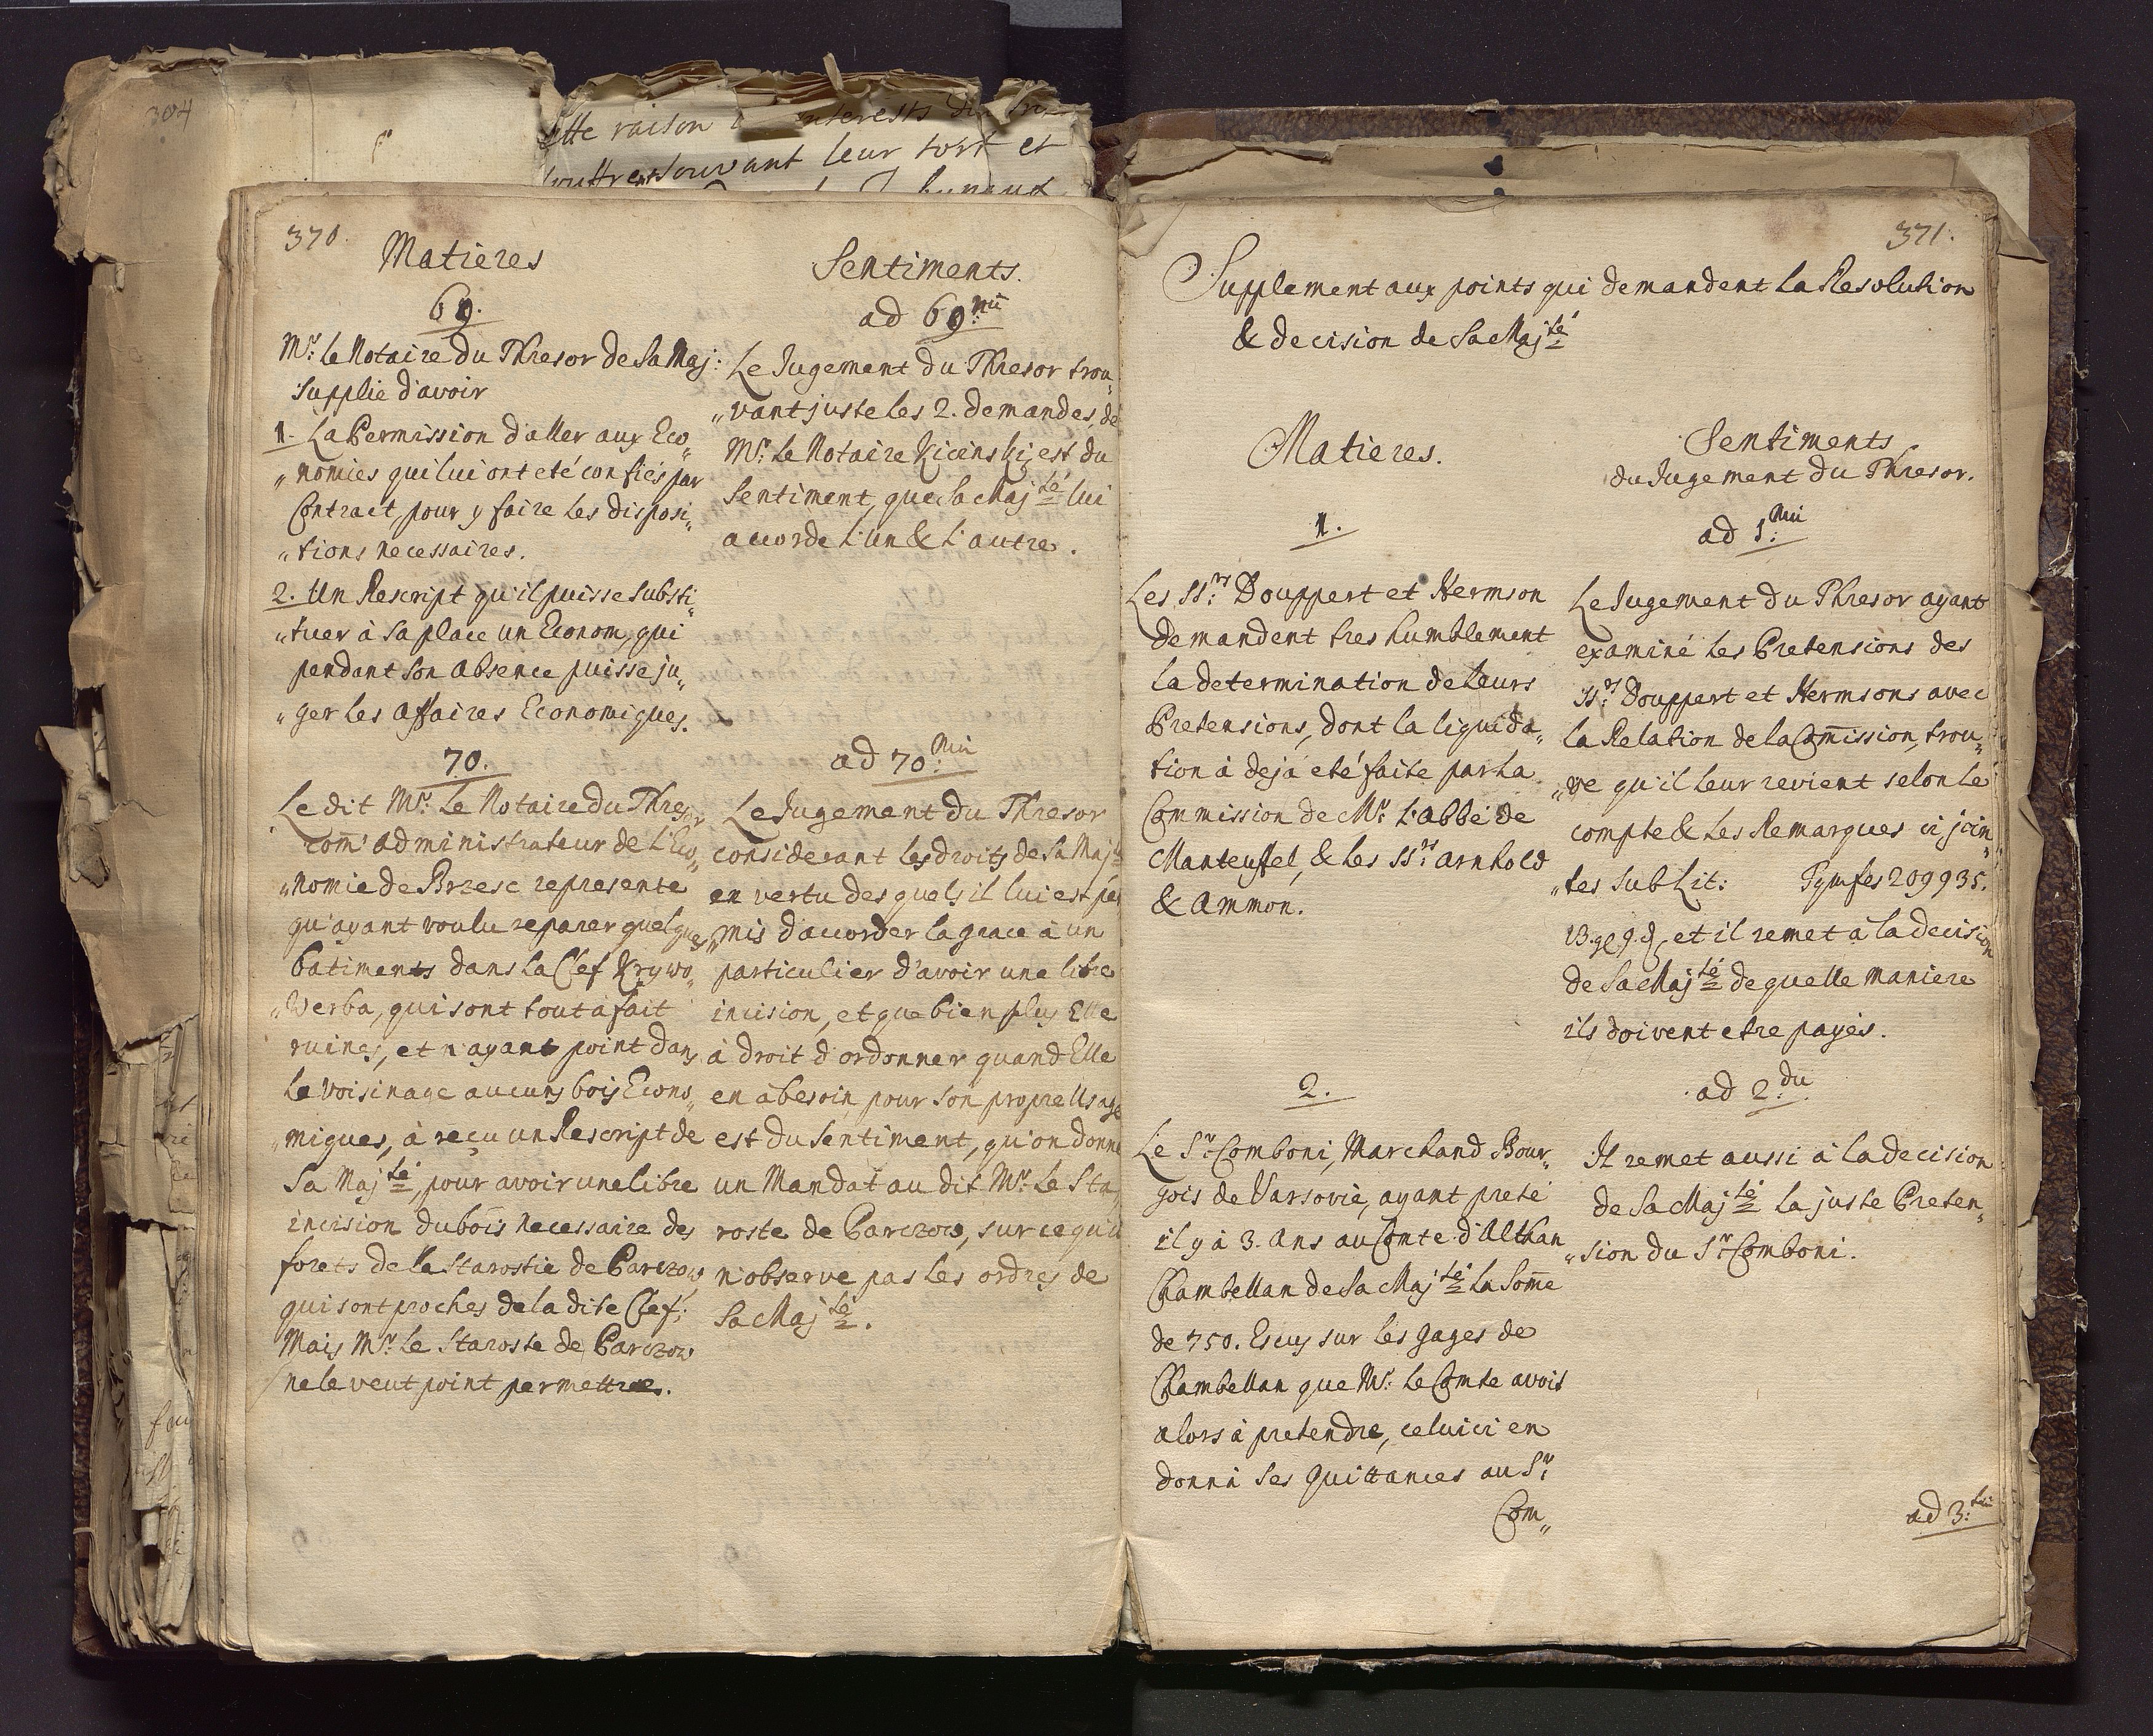 304
cette raison
souffrent souvant leur tort et
370.
Matieres
69.
Mr. le Notaire du Thresor de Sa Maj:
supplie d'avoir
1. La Permission d'aller aux Eco„
„nomies qui lui ont eté confiés par
Contract, pour y faire les disposi„
„tions necessaires.
2. Un Rescript qu'il puisse substi„
„tuer à sa place un Econom, qui
pendant son absence puisse ju„
„ger les affaires Economiques.
70.
Le dit Mr. le Notaire du Thresor
com̄' administrateur de l'Eco„
„nomie de Brzesc represente
qu'ayant voulu reparer quelques
batiments dans la Clef Krywo„
„Werba, qui sont tout à fait
ruinés, et n'ayant point dans
le voisinage aucuns bois Econo„
„miques, à reçu un Rescript de
Sa Majté, pour avoir une libre
incision du bois necessaire des
forets de la Starostie de Parczow
qui sont proches de la dite Clef;
Mais Mr. le Staroste de Parczow
ne le veut point permettre.
Sentiments.
ad 69.mū
Le Jugement du Thresor trou„
„vant juste les 2. demandes, de
Mr. le Notaire Kicinski, est du
sentiment, que Sa Majté lui
accorde l'un & l'autre.
ad 70.mū
Le Jugement du Thresor
considerant les droits de Sa Majté
en vertu des quels il lui est per
„mis d'accorder la grace à un
particulier d'avoir une libre
incision, et que bien plus Elle
à droit d'ordonner quand Elle
en à besoin pour son propre Usage
est du sentiment, qu'on donne
un Mandat au dit Mr. le Sta„
roste de Parczow, sur ce qu'il
n'observe pas les ordres de
Sa Majté.
371.
Supplement aux points qui demandent la Resolution
& decision de Sa Majté
Matieres.
1.
Les SSrs. Douppert et Hermson
demandent tres humblement
la determination de leurs
Pretensions, dont la liquida„
tion à deja eté faite par la
Commission de Mr. l'Abbé de
Manteuffel, & les SSrs. Arnhold
& Ammon.
2.
Le Sr. Comboni, Marchand Bour„
gois de Varsovie, ayant preté
il y à 3. ans au Comte d'Althan
Chambellan de Sa Majté la Som̄e
de 750. Escus sur les gages de
Chambellan que Mr. le Comte avoit
alors à pretendre, celuici en
donna ses Quittances au Sr.
Com„
Sentiments
du Jugement du Thresor.
ad 1.mū
Le Jugement du Thresor ayant
examiné les Pretensions des
SSrs. Douppert et Hermsons avec
la Relation de la Com̄ission, trou„
„ve qu'il leur revient selon le
compte & les Remarques ci join„
„tes sub Lit: Tymfes 209935.
13. gl. 9. d, et il remet à la decision
de Sa Majté de quelle maniere
ils doivent etre payés.
ad 2.du
Il remet aussi à la decision
de Sa Majté la juste Preten„
„sion du Sr. Comboni.
ad 3.tiū